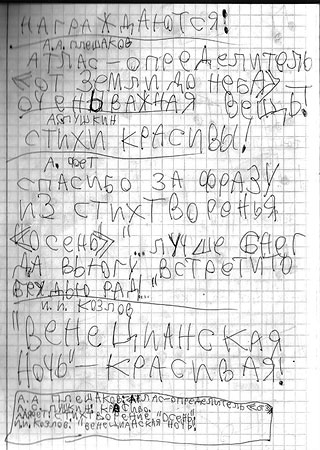 НАГРАЖДАЮТСЯ!
А.А. ПЛЕШАКОВ
АТЛАС-ОПРЕДЕЛИТЕЛЬ
«ОТ ЗЕМЛИ ДО НЕБА»
ОЧЕНЬ ВАЖНАЯ ВЕЩЬ!
А. ПУШКИН
СТИХИ КРАСИВЫ!
А. ФЕТ
СПАСИБО ЗА ФРАЗУ
ИЗ СТИХТВОРЕНЬЯ
«ОСЕНЬ» "...ЛУЧШЕ СНЕГ
ДА ВЬЮГУ ВСТРЕТИТЬ
ГРУДЬЮ РАД!
И.И. КОЗЛОВ
"ВЕНЕЦИАНСКАЯ
НОЧЬ"-КРАСИВАЯ!
А.А ПЛЕШАКОВ: АТЛАС-ОПРЕДЕЛИТЕЛЬ
А. ПУШКИН: КРАСИВО.
А. ФЕТ: СТИХТВОРЕНИЕ "ОСЕНЬ"
И.И. КОЗЛОВ: "ВЕНЕЦИАНСКАЯ НОЧЬ"